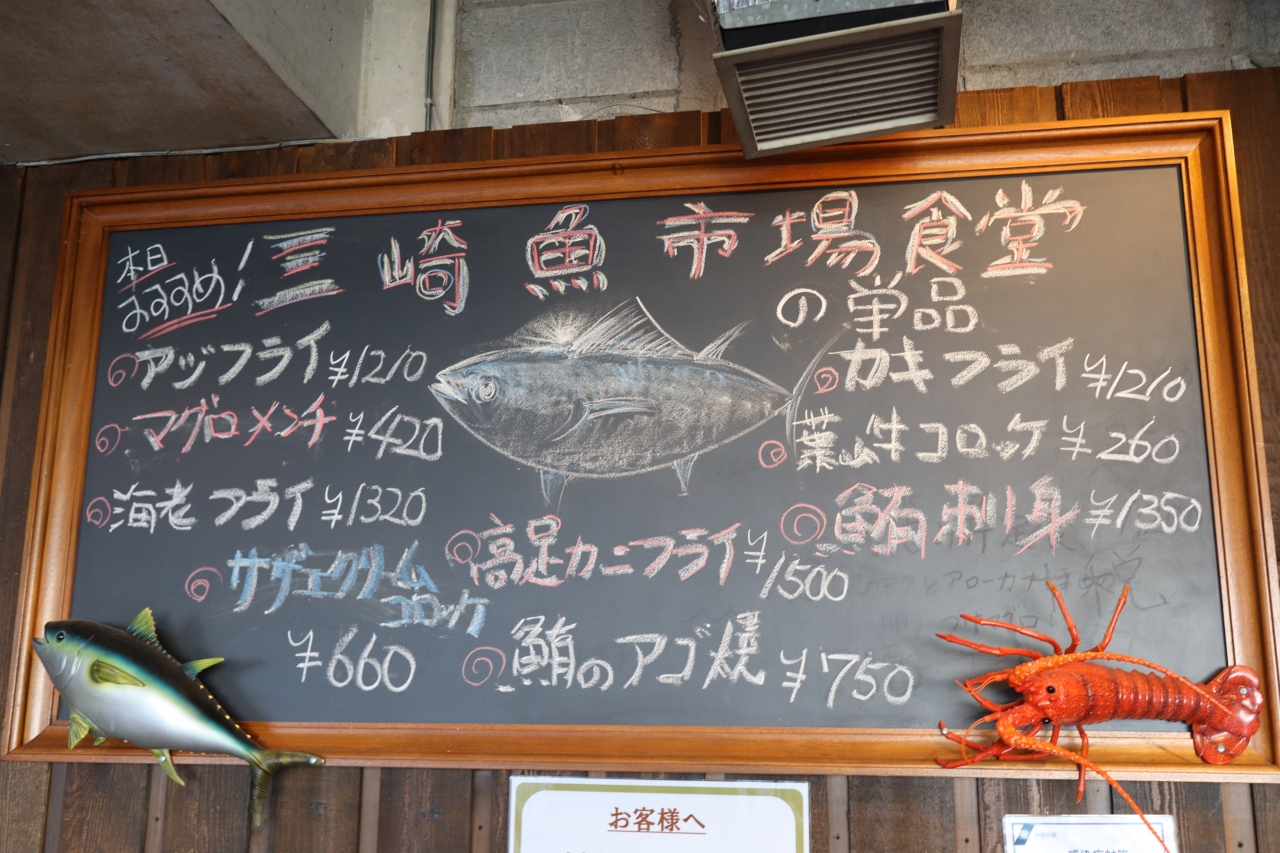 本日
おすすめ!
三崎魚市場食堂
の単品
アジフライ ¥1210
マグロメンチ ¥420
海老フライ ¥1320
サザエクリーム
コロッケ
¥660
高足カニフライ ¥1500
鮪のアゴ焼 ¥750
カキフライ ¥1210
葉山牛コロッケ ¥260
鮪刺身 ¥1350
お客様へ